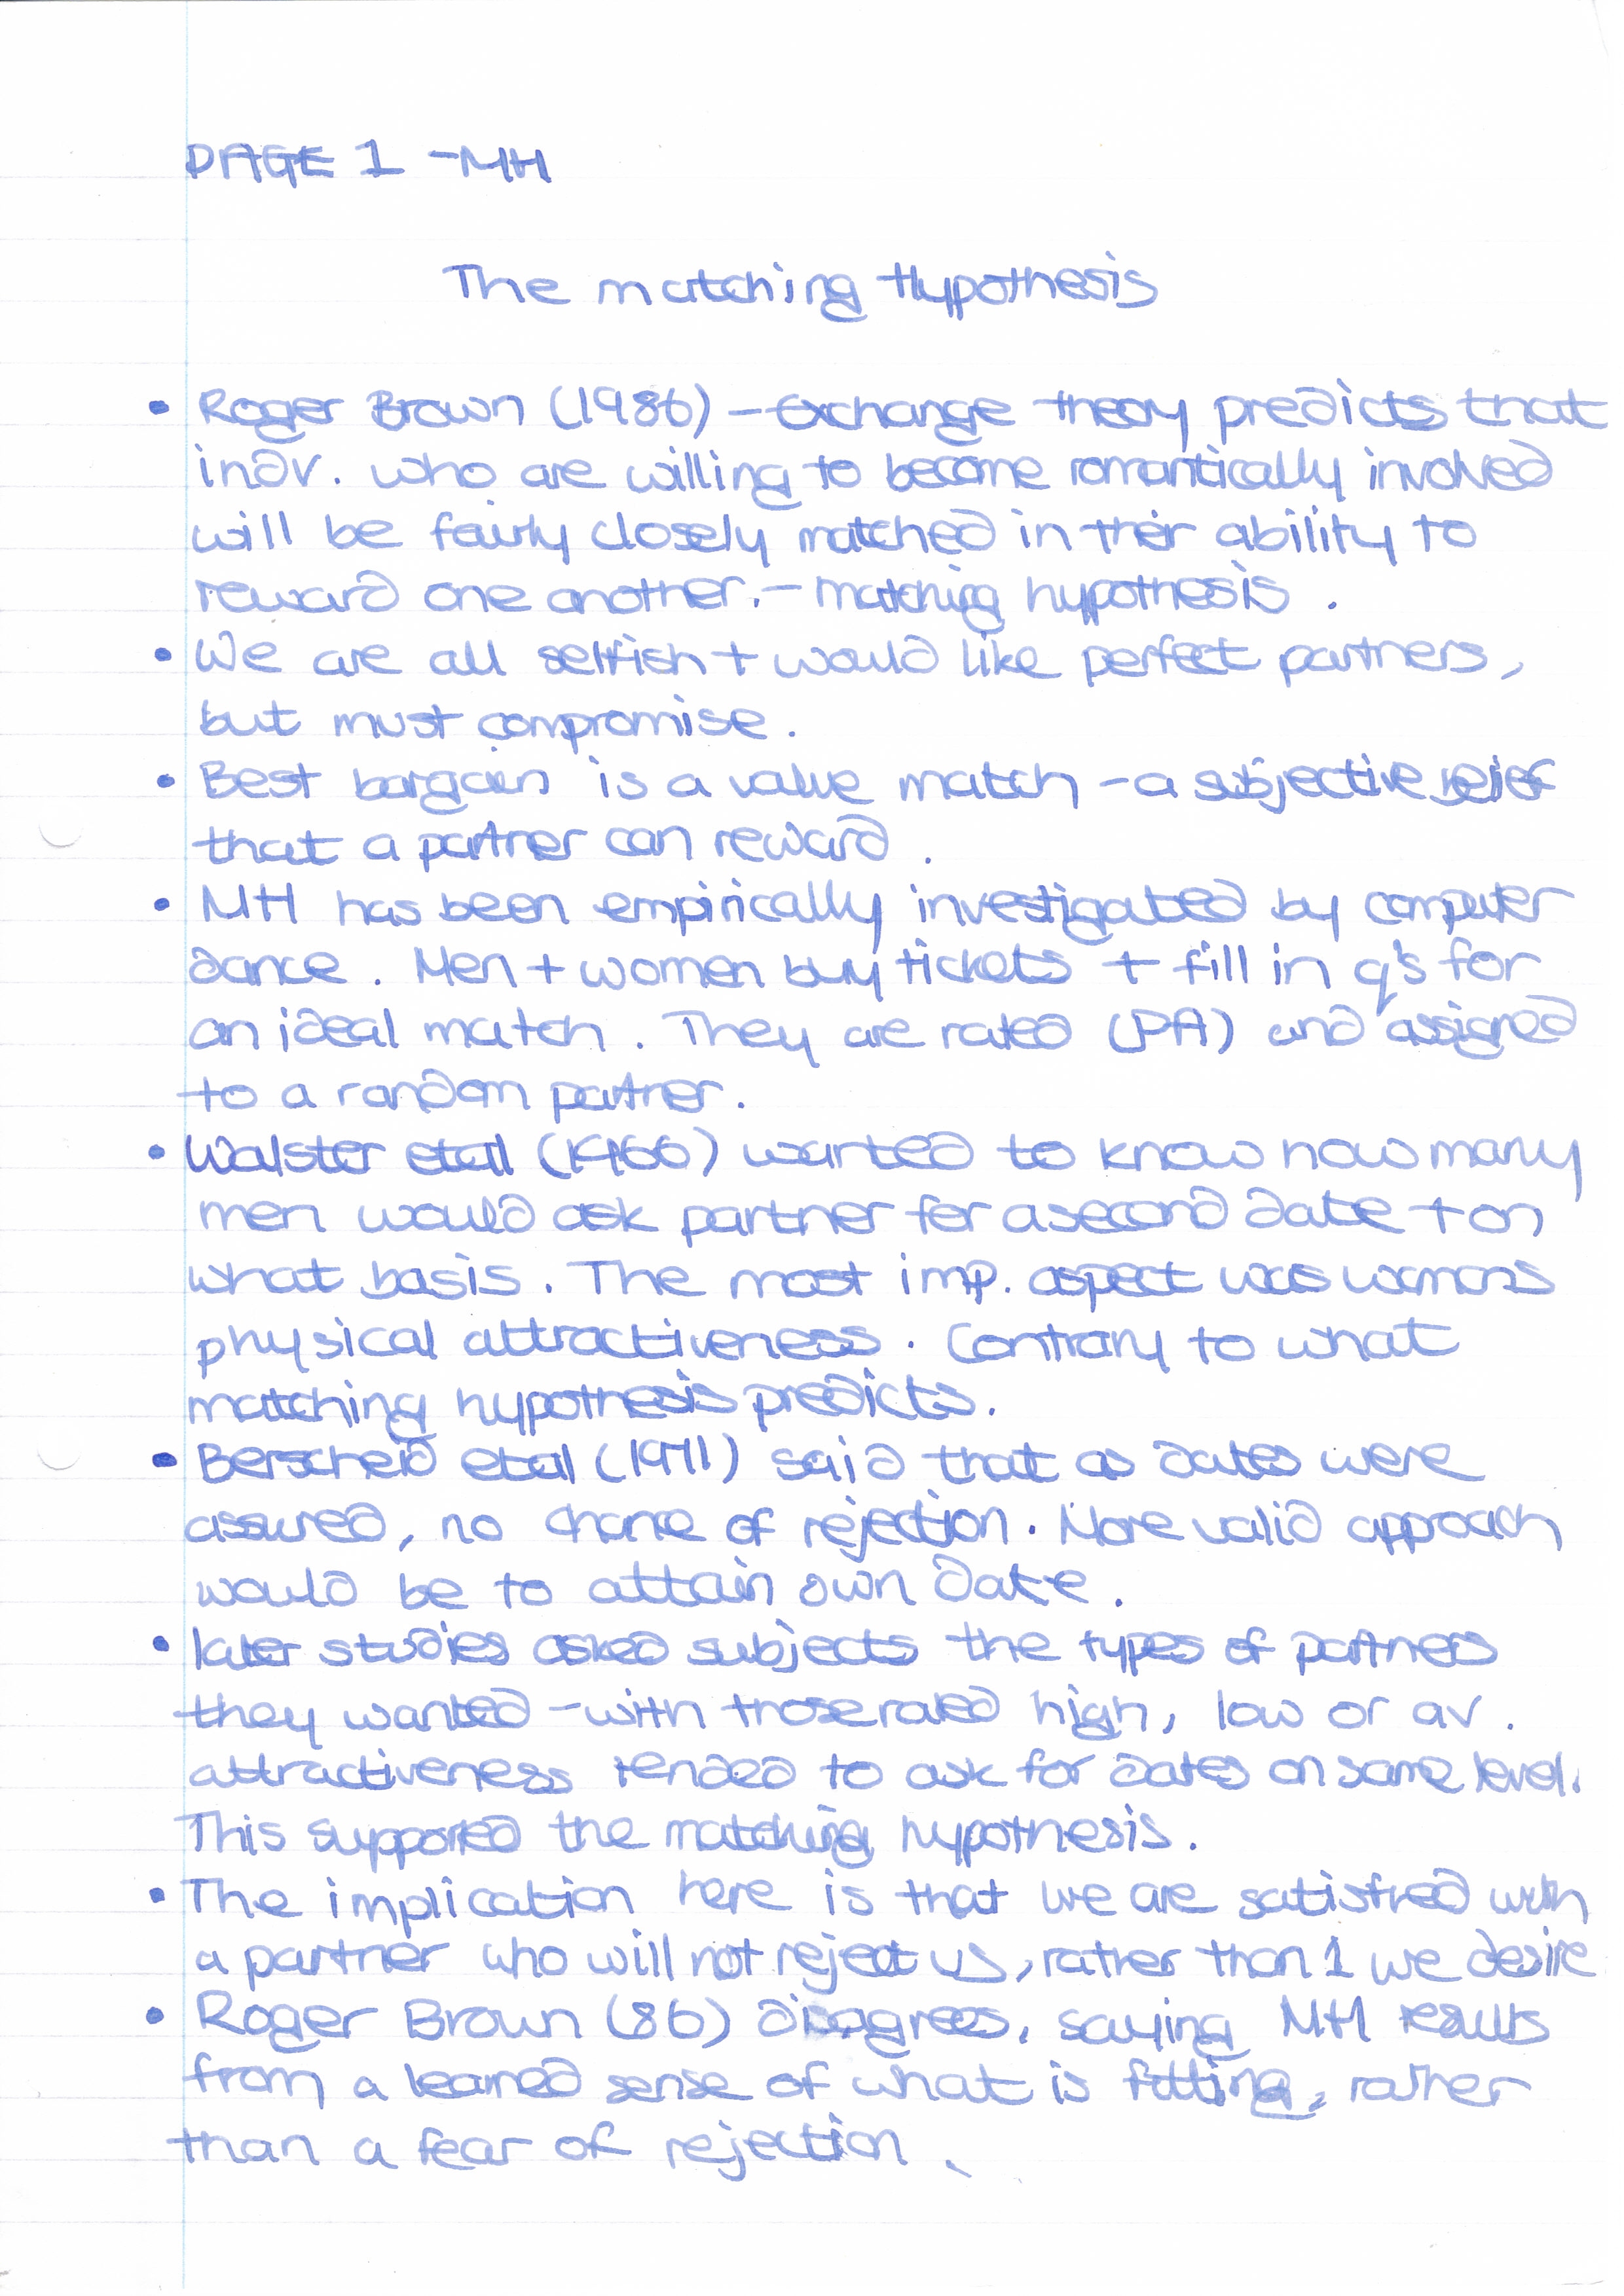 PAGE 1 - MH
The matching Hypothesis
• Roger Brown (1986) - Exchange theory predicts that
indv. who are willing to become romantically involved
will be fairly closely matched in their ability to
reward one another. - matching hypothesis.
• We are all selfish + would like perfect partners,
but must compromise.
• Best bargain is a value match - a subjective
that a partner can reward.
• MH has been empirically investigated by computer
dance. Men + women buy tickets + fill in q's for
an ideal match. They are rated (PA) and assigned
to a random partner.
• Walster etal (1966) wanted to know how many
men would ask partner for a second date + on
what basis. The most imp. aspect was womans
physical attractiveness. Contrary to what
matching hypothesis predicts.
• Berscheid etal (1971) said that as dates were
assured, no chance of rejection. More valid approach
would be to attain own date.
• later studies asked subjects the types of partners
they wanted - with those rated high, low or av.
attractiveness tended to ask for dates on same level.
This supported the matching hypothesis.
• The implication here is that we are satisfied with
a partner who will not reject us, rather than 1 we desire
• Roger Brown (86) disagrees, saying MH results
from a learned sense of what is fitting, rather
than a fear of rejection.